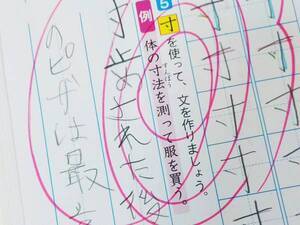 寸 寸 寸 寸
寸 寸 寸
5 寸を使って、文を作りましょう。
例 体の寸法を測って服を買う。
すんぽう
寸止めされた後
のピザは最